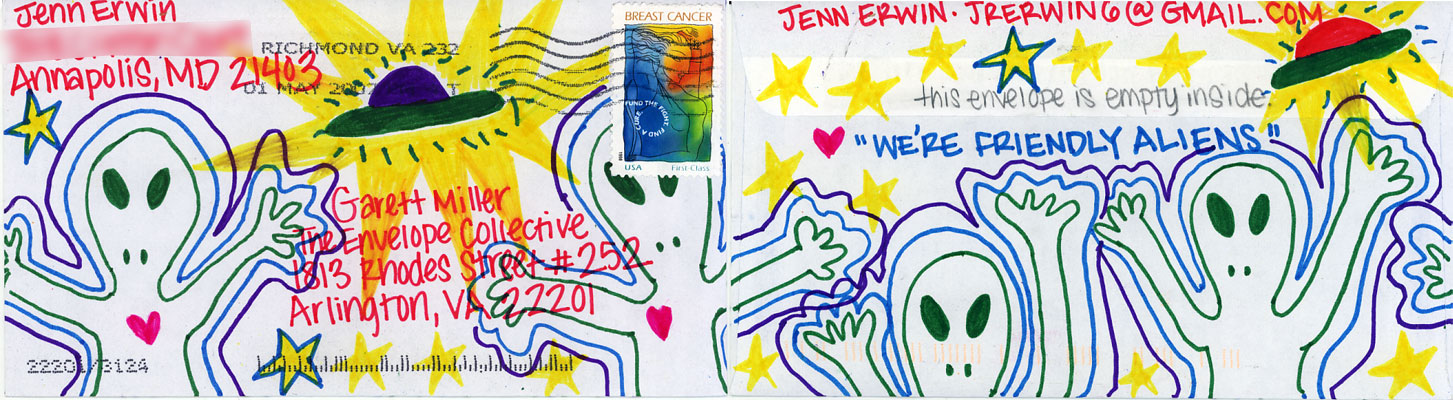 Jenn Erwin
Annapolis, MD 21403
RICHMOND VA 232
01 MAY 2007 T
BREAST CANCER
FUND THE FIGHT. FIND A CURE
1998
USA First-Class
Garett Miller
The Envelope Collective
1813 Rhodes Street #252
Arlington, VA 22201
22201/3124
JENN ERWIN. JRERWIN6@GMAIL.COM
this envelope is empty inside.
"WE'RE FRIENDLY ALIENS"